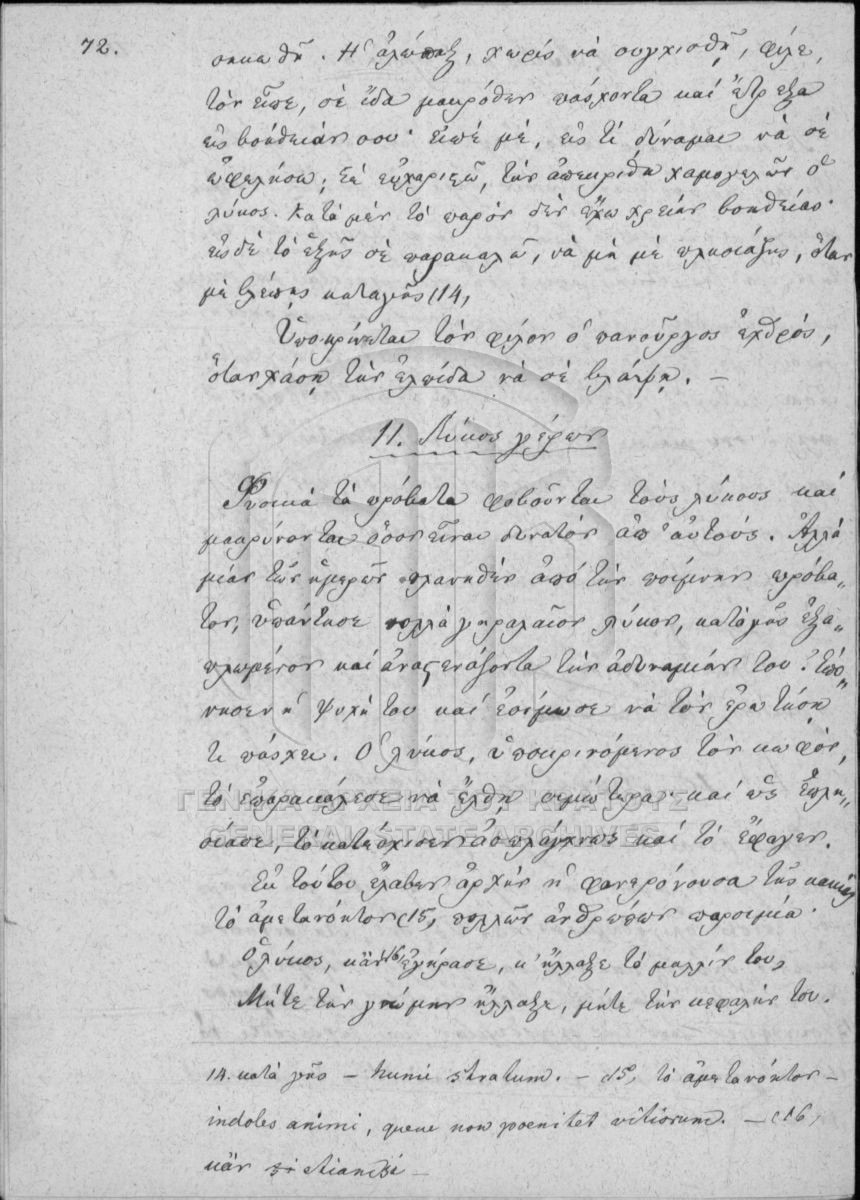 72.
σηκωθῇ. Ἡ ἀλώπηξ, χωρὶς νὰ συγχισθῇ, φίλε,
τὸν εἶπε, σὲ ἴδα μακρόθεν πάσχοντα καὶ ἔτρεξα
εἰς βοήθειάν σου· εἰπέ μὲ, εἰς τί δύναμαι νὰ σὲ
ὠφελήσω; Σὲ εὐχαριστῶ, τὴν ἀπεκρίθη χαμογελῶν ὁ
λύκος. Κατὰ μὲν τὸ παρὸν δὲν ἔχω χρείαν βοηθείας·
εἰςδὲ τὸ ἑξῆς σὲ παρακαλῶ, νὰ μὴ μὲ πλησιάζῃς, ὅταν
μὲ βλέπῃς καταγῆς (14,
Ὑποκρίνεται τὸν φίλον ὁ πανοῦργος ἐχθρός,
ὅταν χάσῃ τὴν ἐλπίδα νὰ σὲ βλάψῃ. —
11. Λύκος γέρων
Φυσικὰ τὰ πρόβατα φοβοῦνται τοὺς λύκους καὶ
μακρύνονται ὅσον εἶναι δυνατὸν ἀπ' αὐτούς. Ἀλλὰ
μίαν τῶν ἡμερῶν πλανηθὲν ἀπὸ τὴν ποίμνην πρόβα„
τον, ὑπάντησε πολλὰ γηραλαῖον λύκον, κατὰ γῆς ἐξα„
πλωμένον καὶ ἀναστενάζοντα τὴν ἀδυναμίαν του. Ἐπό„
νησεν ἡ ψυχή του καὶ ἐσίμωσε νὰ τὸν ἐρωτήσῃ
τί πάσχει. Ὁ λύκος, ὑποκρινόμενος τὸν κωφόν,
τὸ ἐπαρακάλεσε νὰ ἔλθῃ σιμώτερα· καὶ ὡς ἐπλη„
σίασε, τὸ κατέσχισεν ἀσπλάγχνως καὶ τὸ ἔφαγεν.
Ἐκ τούτου ἔλαβεν ἀρχὴν ἡ φανερόνουσα τῆς κακίας
τὸ ἀμετανόητον (15, πολλῶν ἀνθρώπων παροιμία·
Ὁ λύκος, κἂν (16, ἐγήρασε, κ' ἤλλαξε τὸ μαλλίν του,
Μήτε τὴν γνώμην ἤλλαξε, μήτε τὴν κεφαλήν του.
14. κατὰ γῆς — humi stratum. — (15, τὸ ἀμετανόητον —
indoles animi, quae non poenitet vitiorum. — (16,
κἂν — etiamsi —
ΓΕΝΙΚΑ ΑΡΧΕΙΑ ΤΟΥ ΚΡΑΤΟΥΣ
GENERAL STATE ARCHIVES